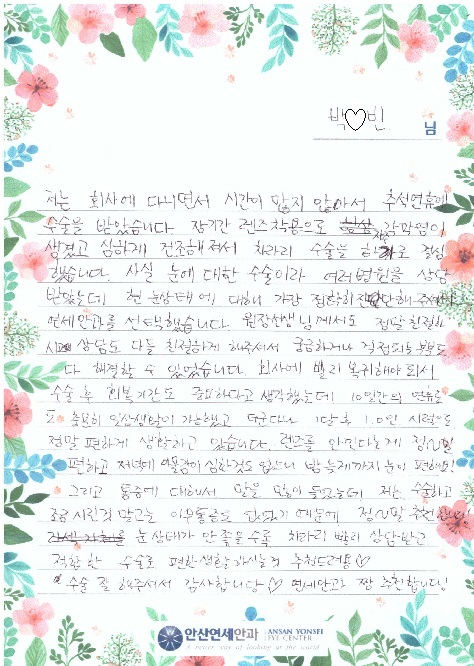 박♡빈 님
저는 회사에 다니면서 시간이 많지 않아서 추석연휴에
수술을 받았습니다. 장기간 렌즈착용으로 각막염이
생겼고 심하게 건조해져서 차라리 수술을 하기로 결심
했습니다. 사실 눈에 대한 수술이라 여러병원을 상담
받았는데 현 눈상태에 대해 가장 정확히 진단해주셔서
연세안과를 선택했습니다. 원장선생님께서도 정말 친절하
시고 상담도 다들 친절하게 해주셔서 궁금하거나 걱정되는 부분도
다 해결할 수 있었습니다. 회사에 빨리 복귀해야 되서
수술 후 회복기간도 중요하다고 생각했는데 10일간의 연휴로
도 충분히 일상생활이 가능했고 더군다나 1달후 1.0인 시력으로
정말 편하게 생활하고 있습니다. 렌즈를 안낀다는게 정말
편하고 저녁에 심한것도 없으니 밤 늦게까지 눈이 편해요!
그리고 통증에 대해서 말을 많이 들었는데 저는 수술하고
조금 시린것 말고는 아무통증도 없었기 때문에 정말 추천합니다!
눈상태가 안 좋을수록 차라리 빨리 상담받고
적합한 수술로 편한생활 하시는것 추천드려요♡
수술 잘 해주셔서 감사합니다♡ 연세안과 짱 추천합니다!
안산연세안과 ANSAN YONSEI
EYE CENTER
A newer way of looking at the world